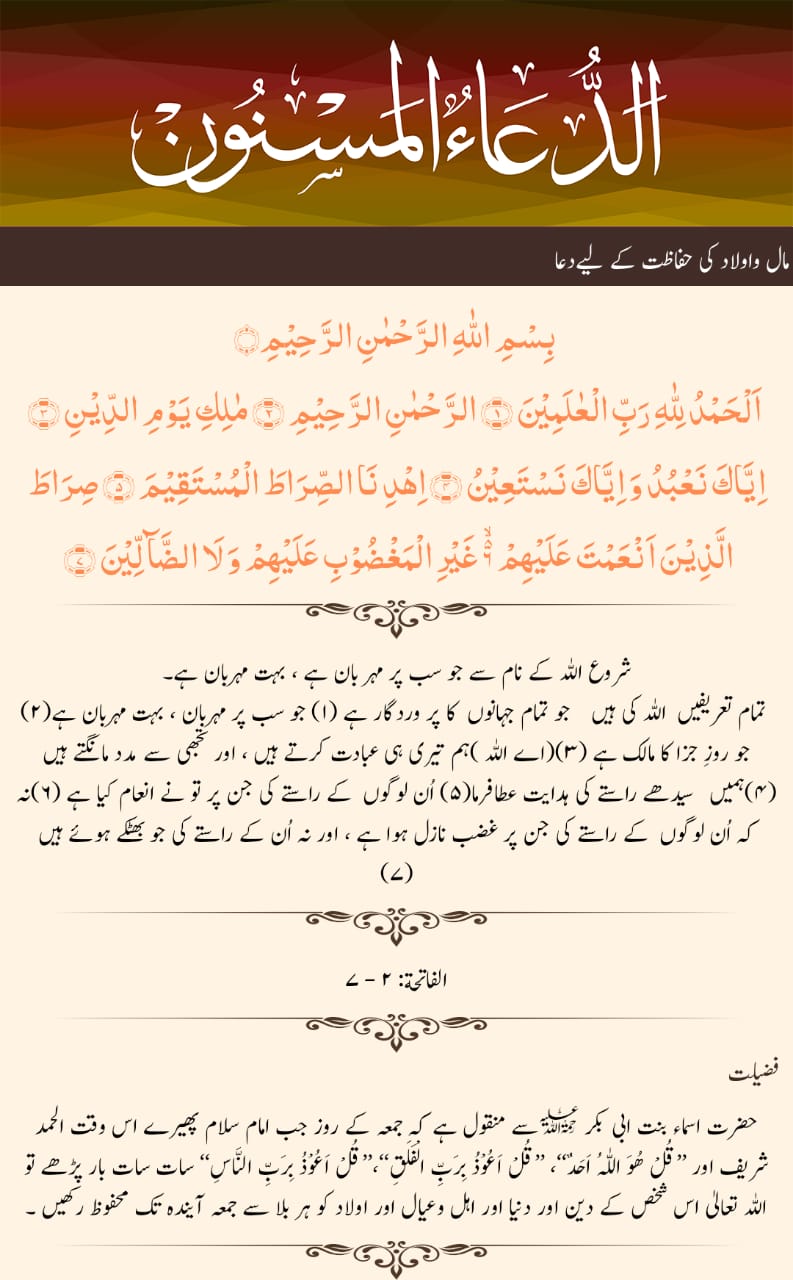 الدُّعَاءُ الْمَسْنُون
مال واولاد کی حفاظت کے لیے دعا
بِسْمِ اللّٰهِ الرَّحْمٰنِ الرَّحِيْمِ
اَلْحَمْدُ لِلّٰهِ رَبِّ الْعٰلَمِيْنَ ۝١ الرَّحْمٰنِ الرَّحِيْمِ ۝٢ مٰلِكِ يَوْمِ الدِّيْنِ ۝٣
اِيَّاكَ نَعْبُدُ وَاِيَّاكَ نَسْتَعِيْنُ ۝۴ اِهْدِنَا الصِّرَاطَ الْمُسْتَقِيْمَ ۝۵ صِرَاطَ
الَّذِيْنَ اَنْعَمْتَ عَلَيْهِمْ ۙ۬ غَيْرِ الْمَغْضُوْبِ عَلَيْهِمْ وَلَا الضَّآلِّيْنَ ۝٧
شروع اللہ کے نام سے جو سب پر مہربان ہے ، بہت مہربان ہے۔
تمام تعریفیں اللہ کی ہیں جو تمام جہانوں کا پروردگار ہے (۱) جو سب پر مہربان ، بہت مہربان ہے(۲)
جو روزِ جزا کا مالک ہے (۳)(اے اللہ )ہم تیری ہی عبادت کرتے ہیں ، اور تجھی سے مدد مانگتے ہیں
(۴)ہمیں سیدھے راستے کی ہدایت عطافرما(۵) اُن لوگوں کے راستے کی جن پر تو نے انعام کیا ہے (۶)نہ
کہ اُن لوگوں کے راستے کی جن پر غضب نازل ہوا ہے ، اور نہ اُن کے راستے کی جو بھٹکے ہوئے ہیں
(۷)
الفاتحة: ۲ – ۷
فضیلت
حضرت اسماء بنت ابی بکر رحمۃ اللہ علیہ سے منقول ہے کہ جمعہ کے روز جب امام سلام پھیرے اس وقت الحمد
شریف اور ”قُلْ هُوَ اللّٰهُ اَحَدٌ“، ”قُلْ اَعُوْذُ بِرَبِّ الْفَلَقِ“،”قُلْ اَعُوْذُ بِرَبِّ النَّاسِ“ سات سات بار پڑھے تو
اللہ تعالیٰ اس شخص کے دین اور دنیا اور اہل وعیال اور اولاد کو ہر بلا سے جمعہ آیندہ تک محفوظ رکھیں ۔